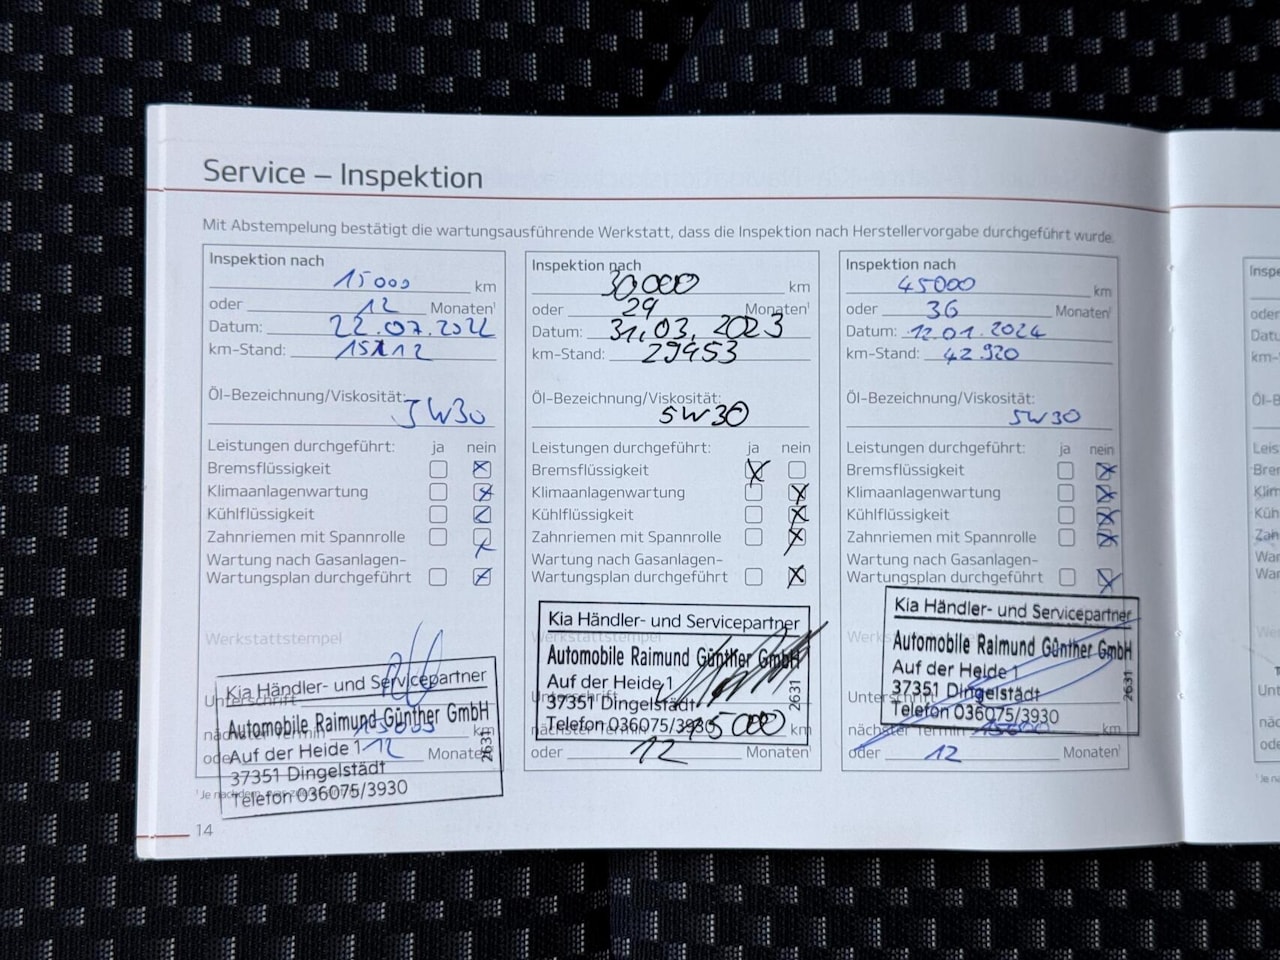 Service – Inspektion
Mit Abstempelung bestätigt die wartungsausführende Werkstatt, dass die Inspektion nach Herstellervorgabe durchgeführt wurde.
Inspektion nach
15000 km
oder 12 Monaten¹
Datum: 22.07.2022
km-Stand:
Öl-Bezeichnung/Viskosität:
5W30
Leistungen durchgeführt: ja nein
Bremsflüssigkeit
Klimaanlagenwartung
Kühlflüssigkeit
Zahnriemen mit Spannrolle
Wartung nach Gasanlagen-
Wartungsplan durchgeführt
Werkstattstempel
Kia Händler- und Servicepartner
Unterschrift
Automobile Raimund Günther GmbH
nächster Termin 15000 km
Auf der Heide 1
oder 12 Monaten
37351 Dingelstädt
Telefon 036075/3930
2631
¹Je nachdem,
14
Inspektion nach
30000 km
oder 29 Monaten¹
Datum: 31.03.2023
km-Stand: 29453
Öl-Bezeichnung/Viskosität:
5W30
Leistungen durchgeführt: ja nein
Bremsflüssigkeit
Klimaanlagenwartung
Kühlflüssigkeit
Zahnriemen mit Spannrolle
Wartung nach Gasanlagen-
Wartungsplan durchgeführt
Kia Händler- und Servicepartner
Werkstattstempel
Automobile Raimund Günther GmbH
Auf der Heide 1
Unterschrift
37351 Dingelstädt
Telefon 036075/3930
2631
nächster Termin 45000 km
oder 12 Monaten¹
Inspektion nach
45000 km
oder 36 Monaten¹
Datum: 12.01.2024
km-Stand: 42.920
Öl-Bezeichnung/Viskosität:
5W30
Leistungen durchgeführt: ja nein
Bremsflüssigkeit
Klimaanlagenwartung
Kühlflüssigkeit
Zahnriemen mit Spannrolle
Wartung nach Gasanlagen-
Wartungsplan durchgeführt
Kia Händler- und Servicepartner
Automobile Raimund Günther GmbH
Auf der Heide 1
37351 Dingelstädt
Unterschrift
Telefon 036075/3930
2631
nächster Termin 15000 km
oder 12 Monaten¹